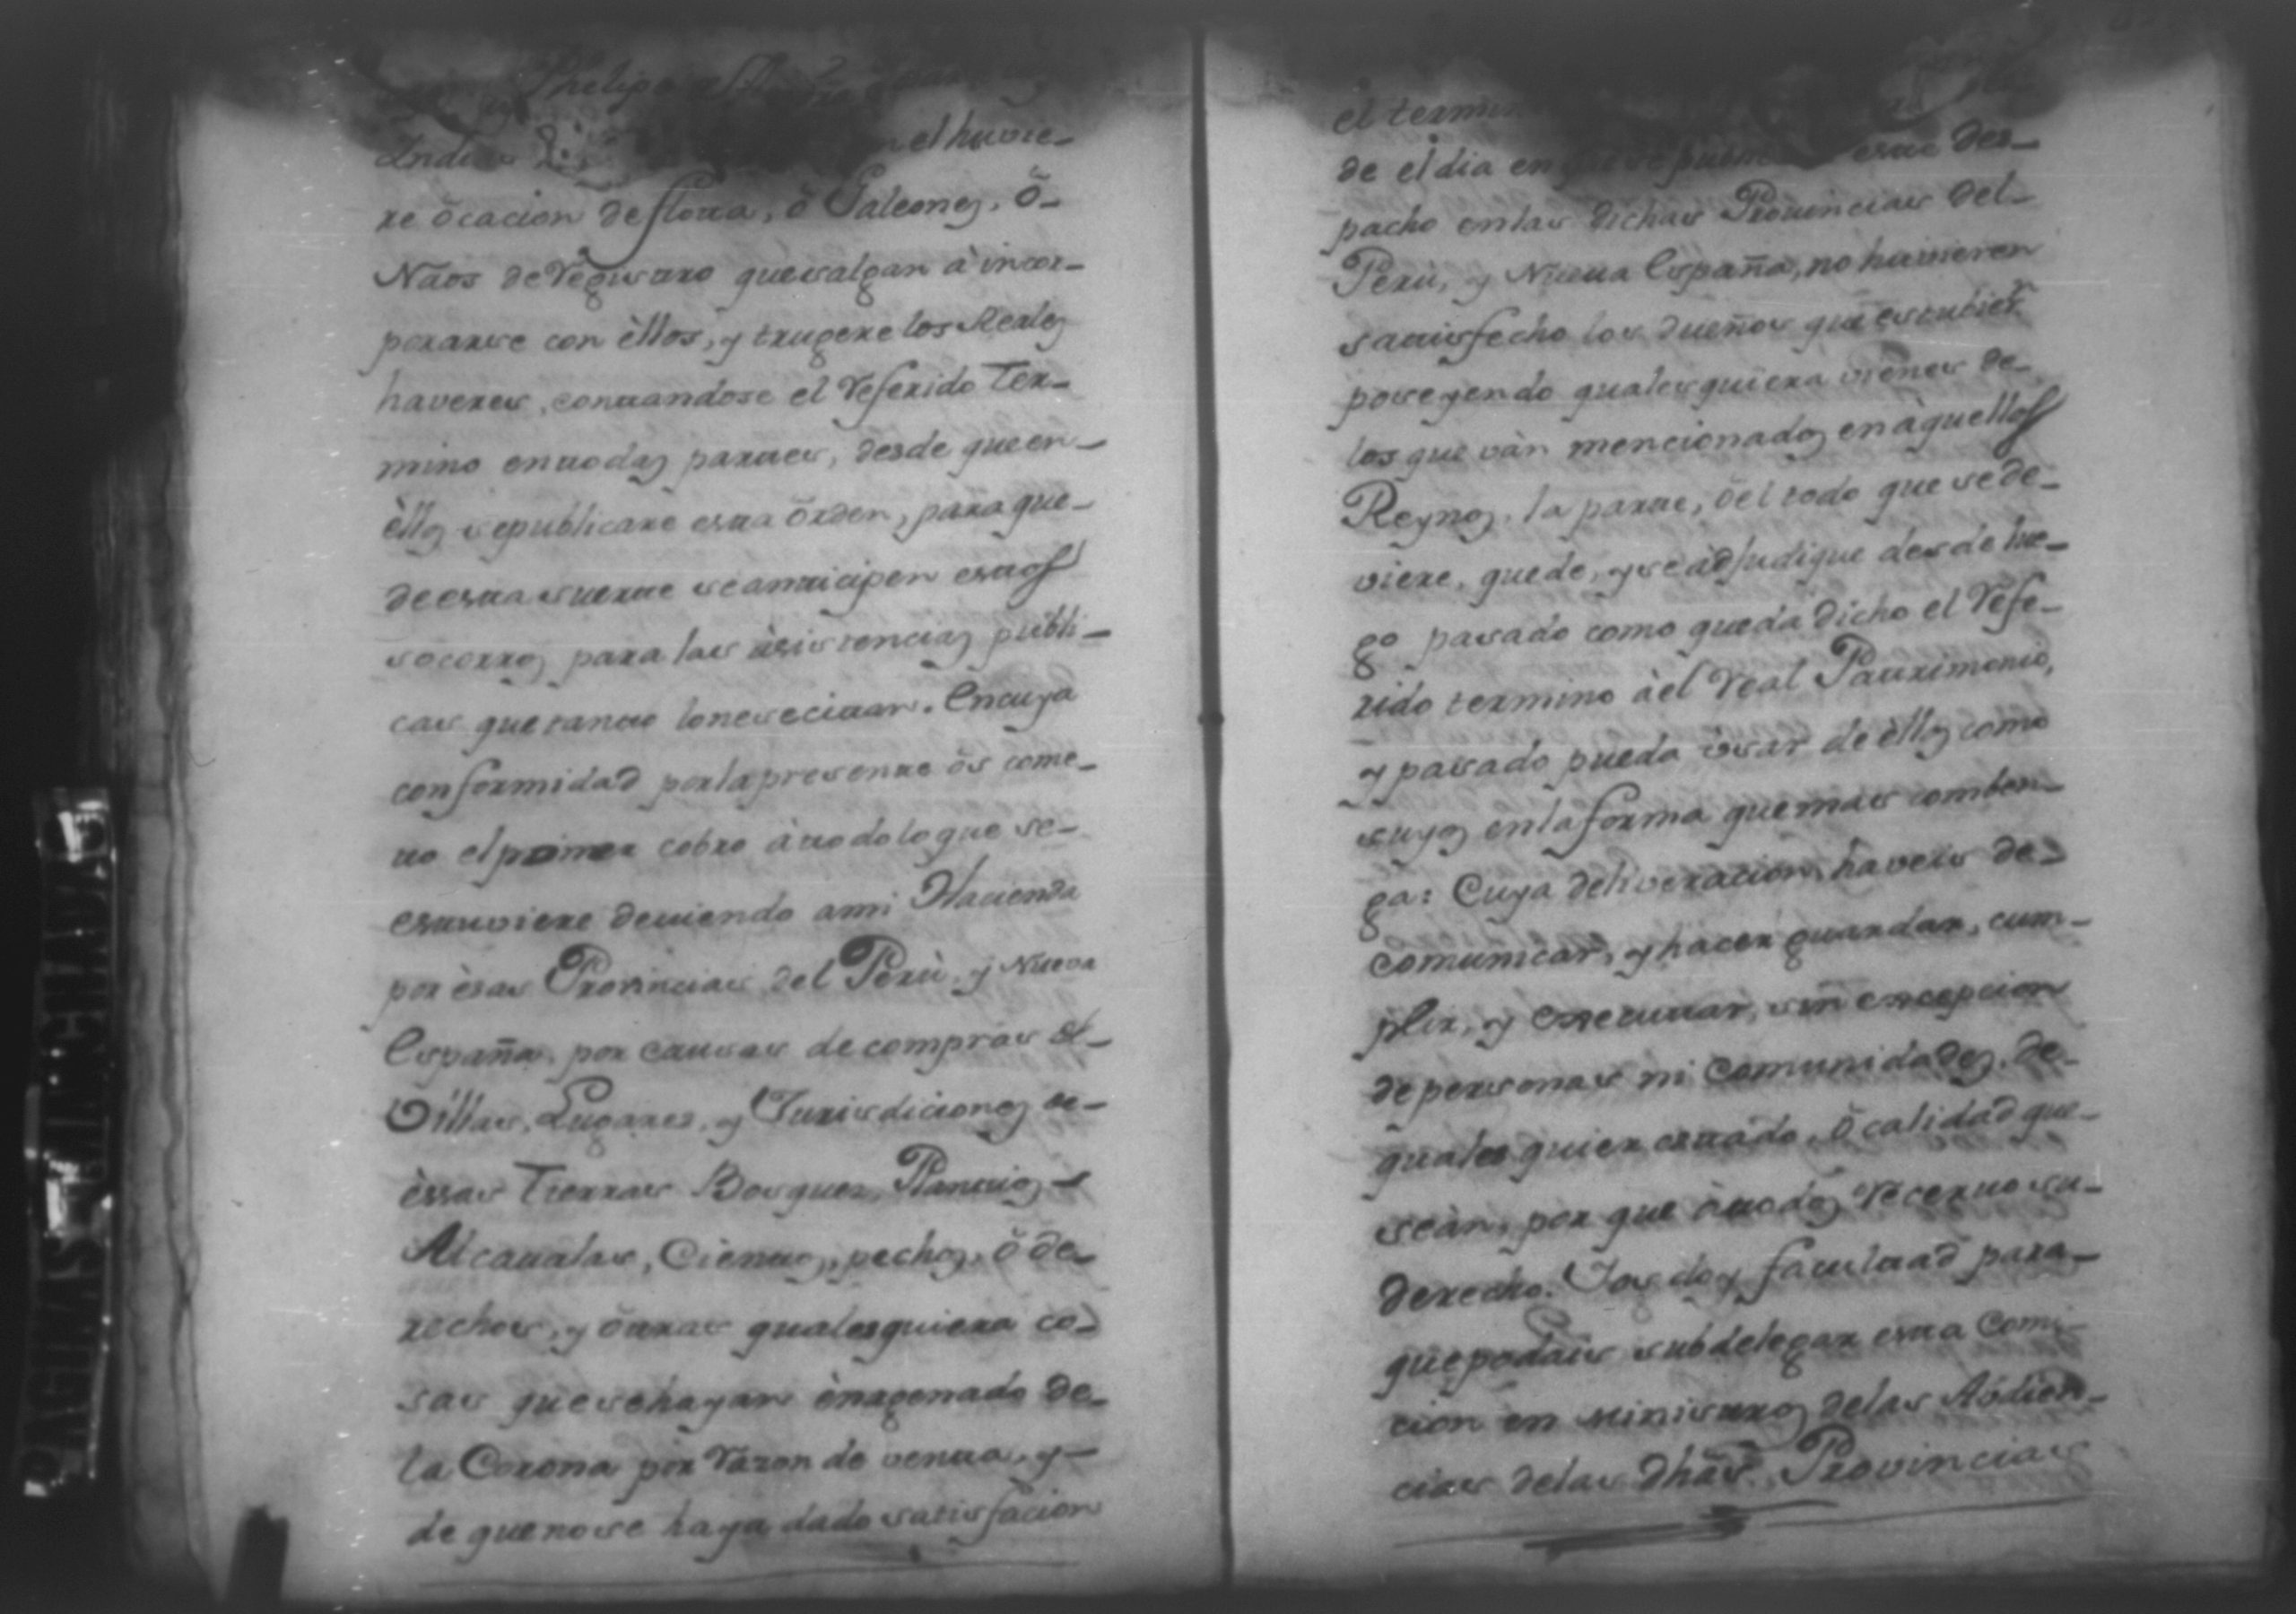 Phelipe
Indias el huvie-
re òcacion de flotta, ò Galeones, ò-
Naos de Registro que salgan à incor-
porarse con èllos, y trugere los Reales
haveres, contandose el Referido Ter-
mino en todas partes, desde que en-
èllos se publicare esta òrden, para que-
de esta suerte se anticipen estos
socorros para las asistencias publi-
cas que tanto lo nesecitan. En cuya
conformidad por la presente òs come-
to el primer cobro à todo lo que se-
estuviere deviendo a mi Hacienda
por èsas Provincias del Perù, y Nueva
España, por causas de compras de-
Villas, Lugares, y Jurisdiciones de-
èssas Tierras Bosques, Plantios-
Alcavalas, Cientos, pechos, ò de-
rechos, y òtras qualesquiera co-
sas que se hayan ènagenado de-
la Corona por Razon de venta, y-
de que no se haya dado satisfacion
el termin
de el dia en que se este des-
pacho en las dichas Provincias del-
Perù, y Nueva España, no huvieren
satisfecho los dueños que estubier.n
poseyendo qualesquiera vienes de-
los que vàn mencionados en àquellos
Reynos, la parte, ò el todo que se de-
viere, quede, y se àdjudique desde lue-
go pasado como queda dicho el Refe-
rido termino à el Real Patrimonio,
y pasado pueda ùsar de èllos como
suyos en la forma que mas comben-
ga: Cuya deliveracion haveis de-
comunicar, y hacer guardar, cum-
plir, y executtar, sin excepcion
de personas ni Comunidades, de-
qualesquier estado, ò calidad que-
seàn, por que à todos Recervo su-
derecho. Ios doy facultad para-
que podais subdelegar esta Comi-
cion en Ministros de las Aùdien-
cias de las dhãs Provincias
PAGINAS